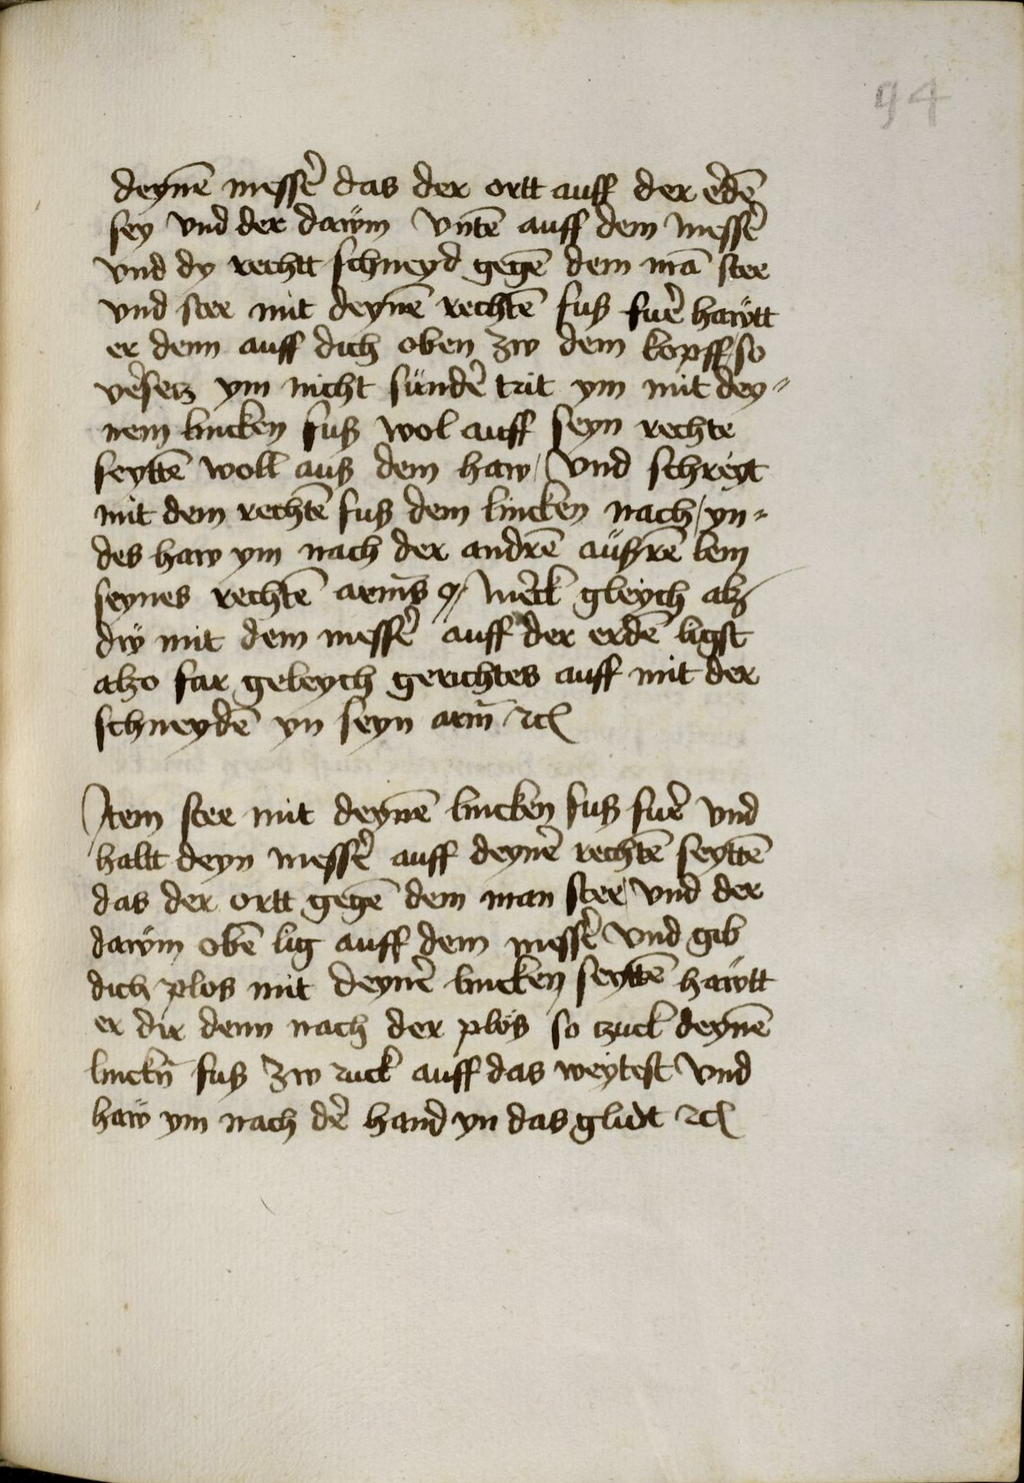 94
deyñe messẽ das der ortt auff der erdẽ
sey vnd der dawm̈ vntẽ auff dem messẽ
vnd dy rechtt schneyd gegẽ dem mã stee
vnd stee mit deyñe rechtẽ fuß fuẽr hawtt
er denn auff dich oben zw dem kopff / so
vẽrsetz ym nicht sündẽr trit ym mit dey〃
nem lincken fuß wol auff seyn rechte
seyttẽ woll aus dem haw / vnd schreyt
mit dem rechtẽ fuß dem lincken nach / yn〃
des haw ym nach der andrẽ aüßrẽ lem
seynes rechtẽ arm̃s Mẽrck gleych alz
dẅ mit dem messẽ auff der erdẽ ligst
alzo far geleych gerichtes auff mit der
schneydẽ yn seyn arm̃ ꝛcꝭ
Item stee mit deyñe lincken fuß fuẽr vnd
haltt deyn messẽ auff deynẽr rechtẽ seyttẽ
das der ortt gegẽ dem man stee / vnd der
dawm̈ obẽ lig auff dem messẽ vnd gib
dich plos mit deynẽr lincken seyttẽ hawtt
er dir denn nach der plös so zuck deyñe
linckñ fuß zw ruck auff das weytest vnd
haẅ ym nach dẽr hand yn das glidt ꝛcꝭ